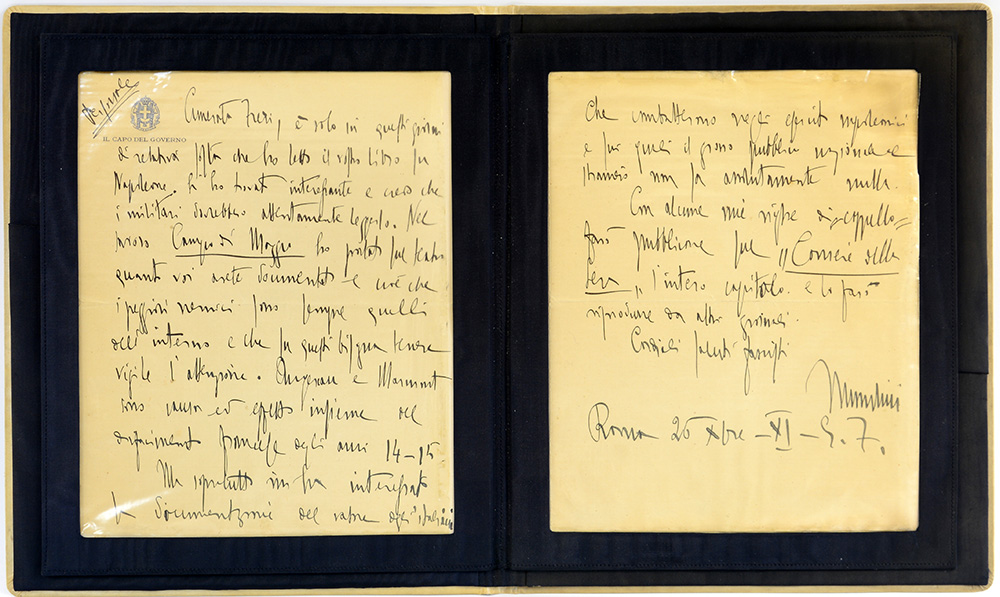 Personale
IL CAPO DEL GOVERNO
Camerata Freri, è solo in questi giorni
di relativa sosta che ho letto il vostro libro su
Napoleone. L'ho trovato interessante e credo che
i militari dovrebbero attentamente leggerlo. Nel
lavoro Campo di Maggio ho portato sul teatro
quanto voi avete documentato e cioè che
i peggiori nemici sono sempre quelli
dell'interno e che su questi bisogna tenere
vigile l'attenzione. Augereau e Marmont
sono causa ed effetto insieme del
disfacimento francese degli anni 14-15
Ma sopratutto mi ha interessato
la documentazione del valore degli italiani
che combatterono negli eserciti napoleonici
e sui quali il grosso pubblico nazionale e
straniero non sa assolutamente nulla.
Con alcune mie righe di
farò pubblicare sul "Corriere della
Sera" l'intero capitolo e lo farò
riprodurre da altri giornali.
Cordiali saluti fascisti
Mussolini
Roma 26 Xbre - XI - E. F.